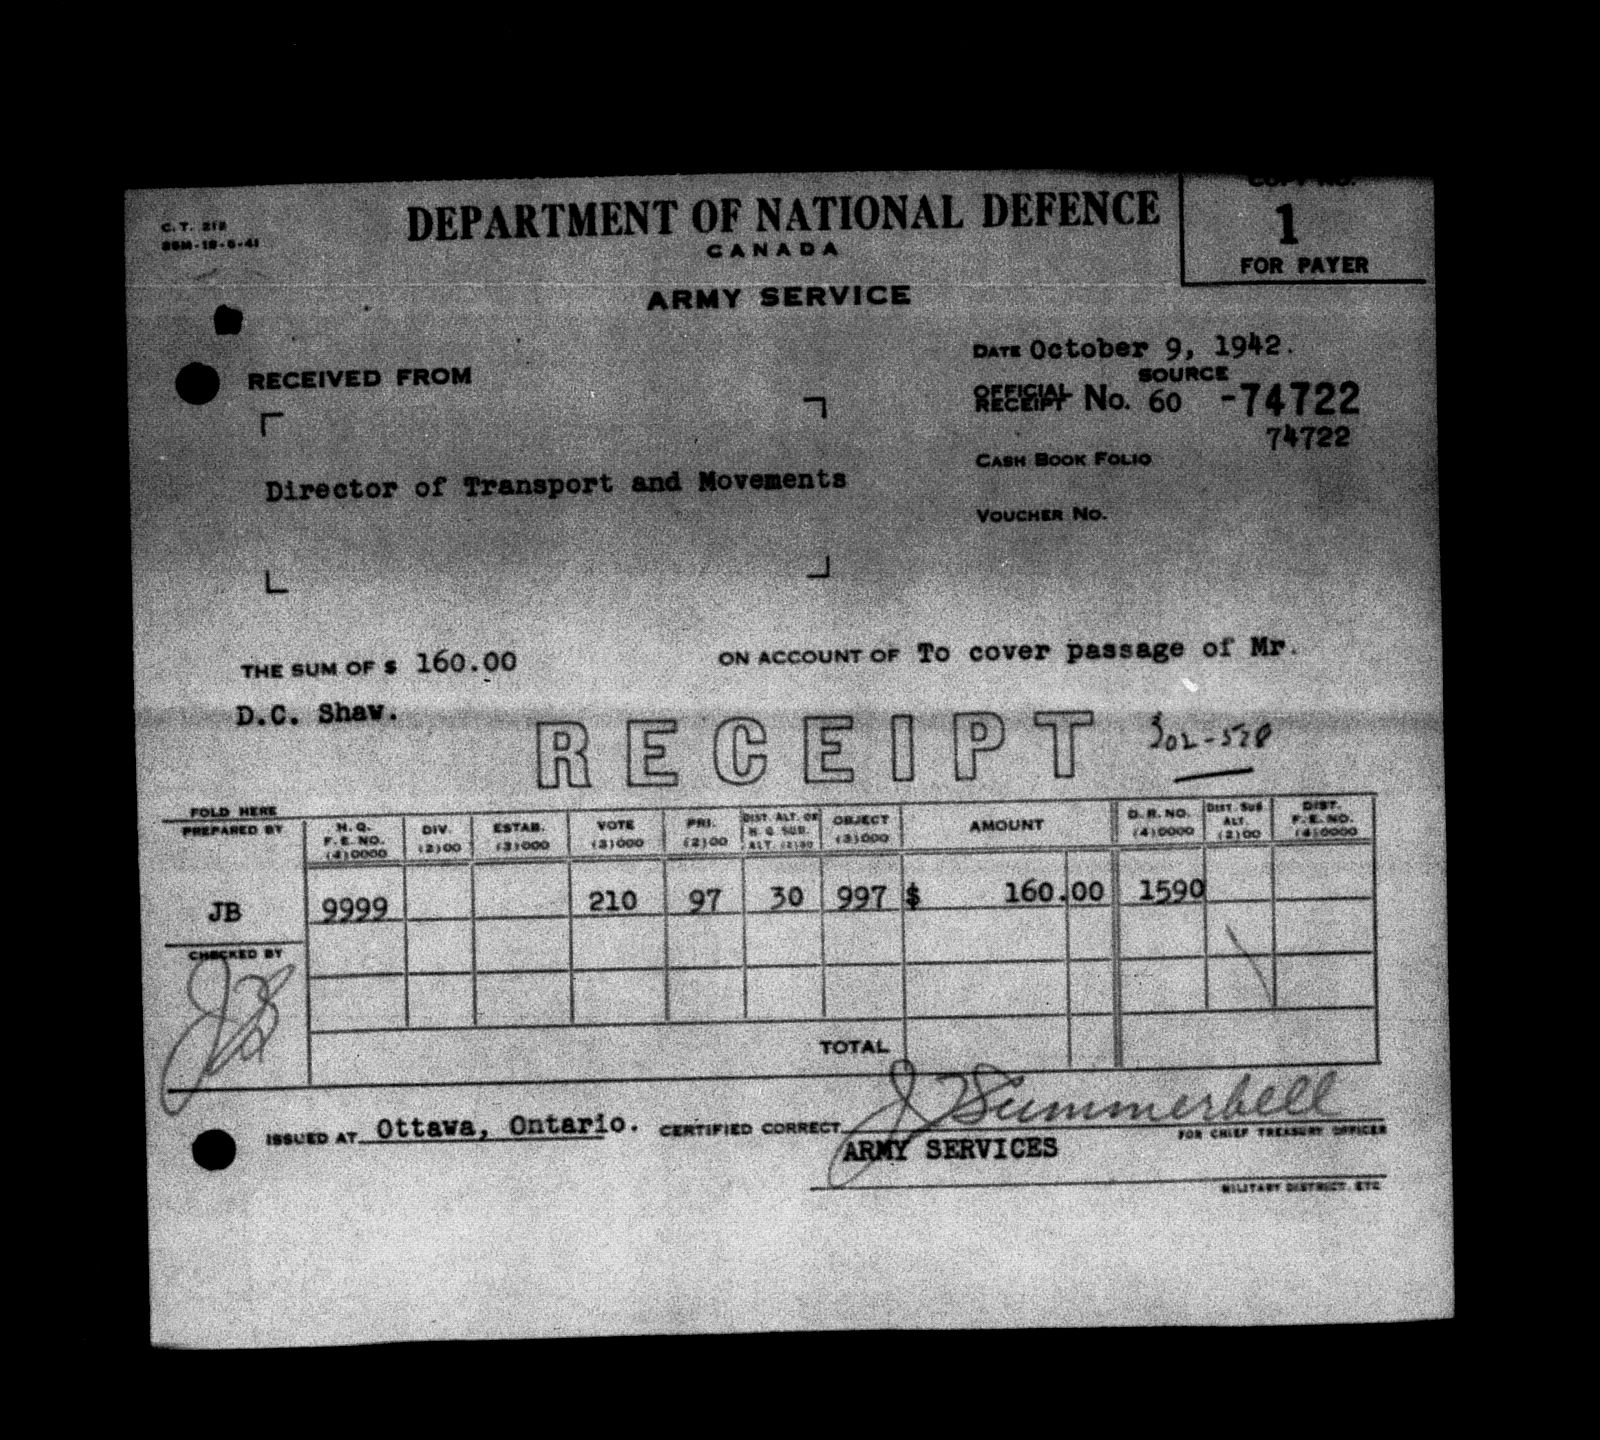 C.T. 212
DEPARTMENT OF NATIONAL DEFENCE
CANADA
ARMY SERVICE
COPY NO.
1
FOR PAYER
DATE October 9, 1942.
SOURCE
OFFICIAL RECEIPT No. 60 -74722
74722
CASH BOOK FOLIO
VOUCHER NO.
RECEIVED FROM
Director of Transport and Movements
THE SUM OF $ 160.00 ON ACCOUNT OF To cover passage of Mr.
D.C. Shaw.
RECEIPT
FOLD HERE
PREPARED BY
H.Q. F.E. NO. (4)0000 DIV. (2)00 ESTAB. (3)000 VOTE (3)000 PRI. (2)00 DIST. ALT. OR H.Q. SUB. ALT. (2)00 OBJECT (3)000 AMOUNT D.R. NO. (4)0000 DIST. SUB ALT. (2)00 DIST. F.E. NO. (4)0000
JB 9999 210 97 30 997 $ 160.00 1590
CHECKED BY
TOTAL
ISSUED AT Ottawa, Ontario. CERTIFIED CORRECT Summerbell
FOR CHIEF TREASURY OFFICER
ARMY SERVICES
MILITARY DISTRICT, ETC